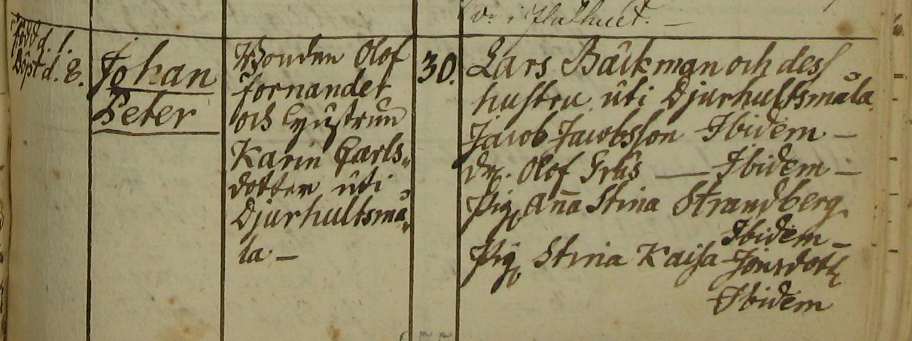 Född d. 1.
Döpt d. 8.
Johan
Peter
Bonden Olof
Fornander
och Hustrun
Karin Carls-
dotter uti
Djurhultsmå-
la –
30.
Lars Bäckman och dess
hustru uti Djurhultsmåla
Jacob Jacobsson Ibidem –
Dr. Olof Friis — Ibidem –
Pig. Anna Stina Strandberg
Ibidem –
Pig. Stina Kajsa Jonsdott
Ibidem